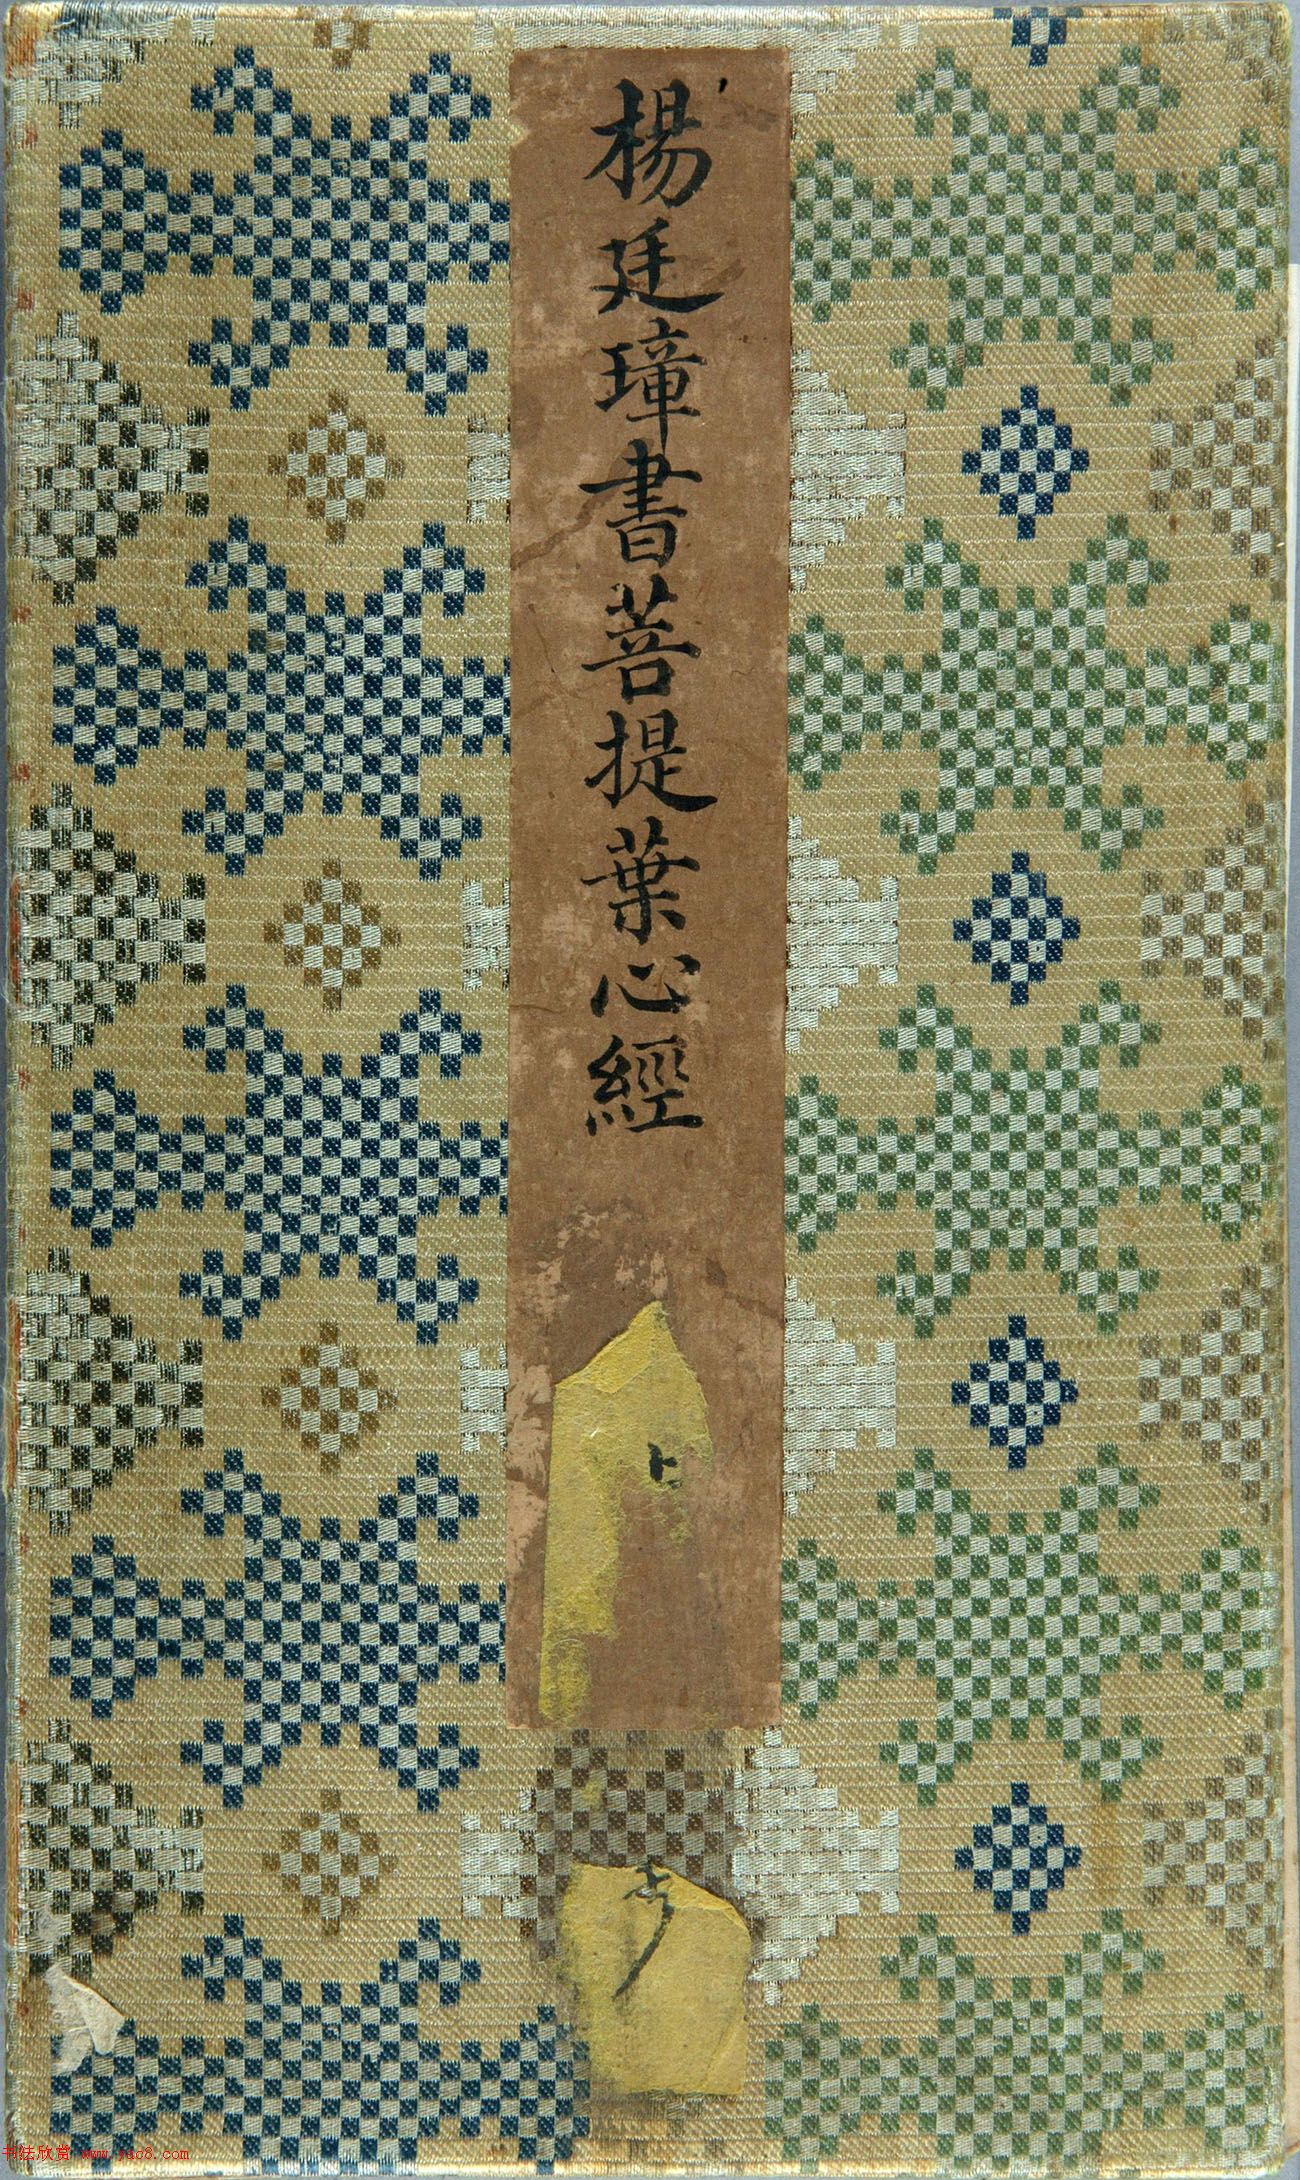 楊廷璋書菩提葉心經
上
书法欣赏 www.yac8.com